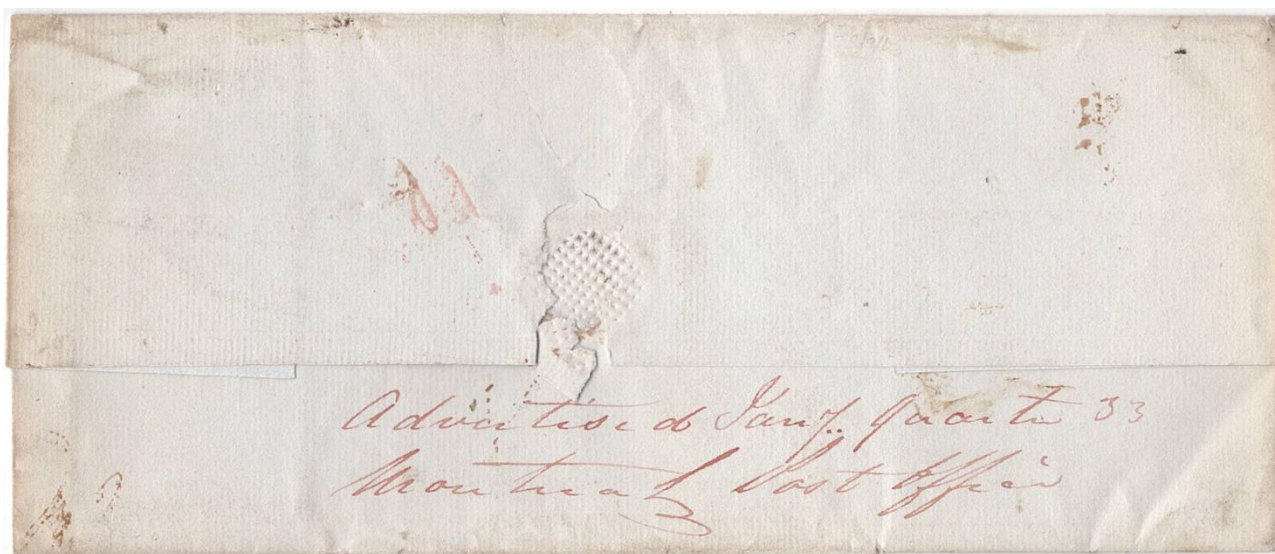 Advertised Jany. Quarter 33
Montreal Post Office